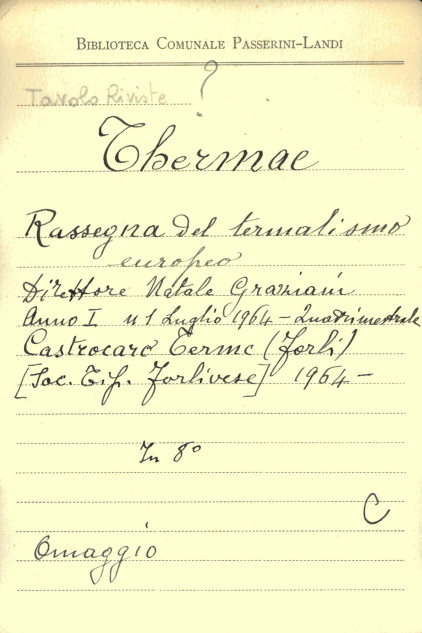 BIBLIOTECA COMUNALE PASSERINI-LANDI
Tavolo Riviste ?
Thermae
Rassegna del termalismo
europeo
Direttore Natale Graziani
Anno I n 1 Luglio 1964 - Quadrimestrale
Castrocaro Terme (Forlì)
[Soc. Tip. Forlivese] 1964 -
In 8°
C
Omaggio